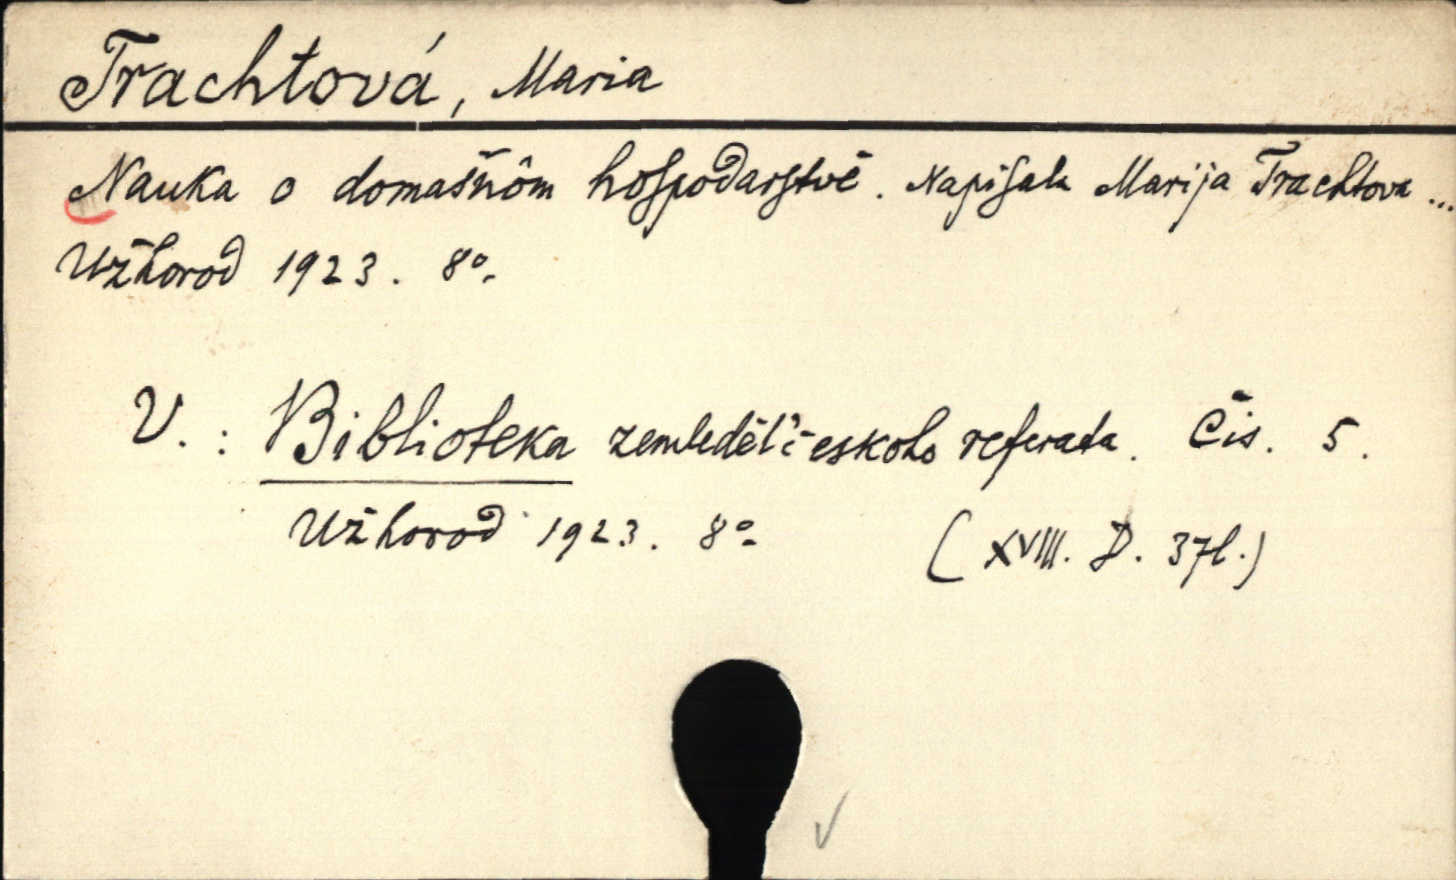 Trachtová, Maria
Nauka o domašńôm hospodarstvě. Napisala Marija Trachtova ...
Užhorod 1923. 8º.
V. : Biblioteka zemleděl'českoho referata. Čis. 5.
Užhorod 1923. 8º.
(XVIII. D. 37l.)